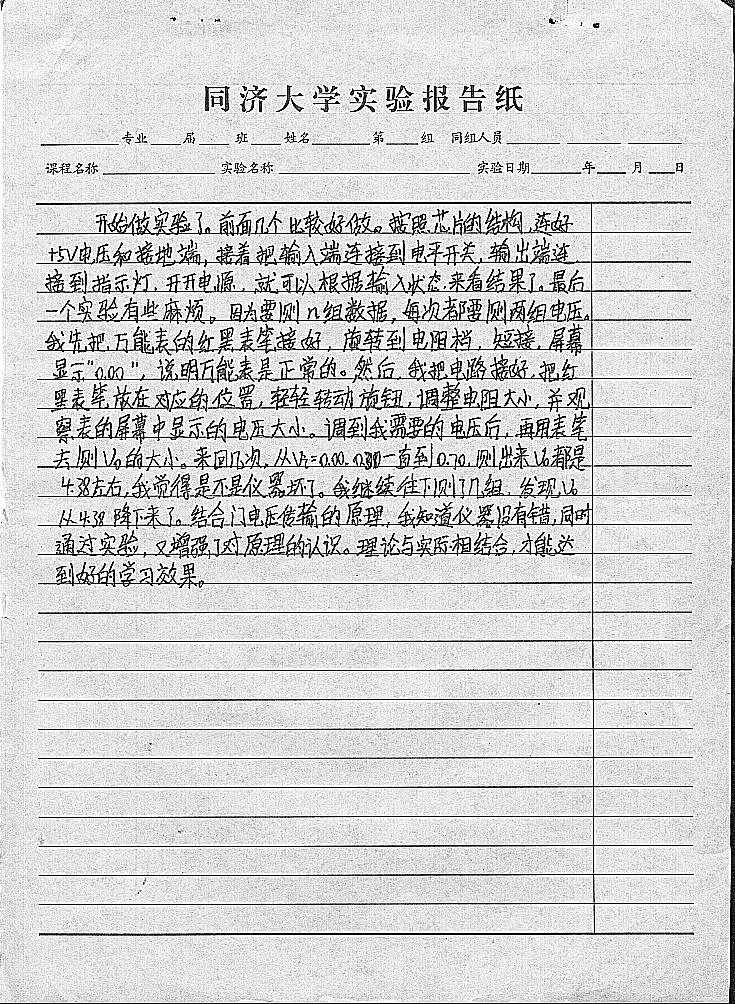 同济大学实验报告纸
专业 届 班 姓名 第 组 同组人员
课程名称 实验名称 实验日期 年 月 日
开始做实验了。前面几个比较好做。按照芯片的结构,连好
+5V电压和接地端,接着把输入端连接到电平开关,输出端连
接到指示灯,开开电源,就可以根据输入状态来看结果了。最后
一个实验有些麻烦。因为要测n组数据,每次都要测两组电压。
我先把万能表的红黑表笔接好,旋转到电阻档,短接,屏幕
显示"0.00",说明万能表是正常的。然后,我把电路接好,把红
黑表笔放在对应的位置,轻轻转动旋钮,调整电阻大小,并观
察表的屏幕中显示的电压大小。调到我需要的电压后,再用表笔
去测V₀的大小。来回几次,从Vi=0.00、0.30一直到0.70,测出来V₀都是
4.38左右,我觉得是不是仪器坏了。我继续往下测了几组,发现V₀
从4.38降下来了。结合门电压传输的原理,我知道仪器没有错,同时
通过实验,又增强了对原理的认识。理论与实际相结合,才能达
到好的学习效果。